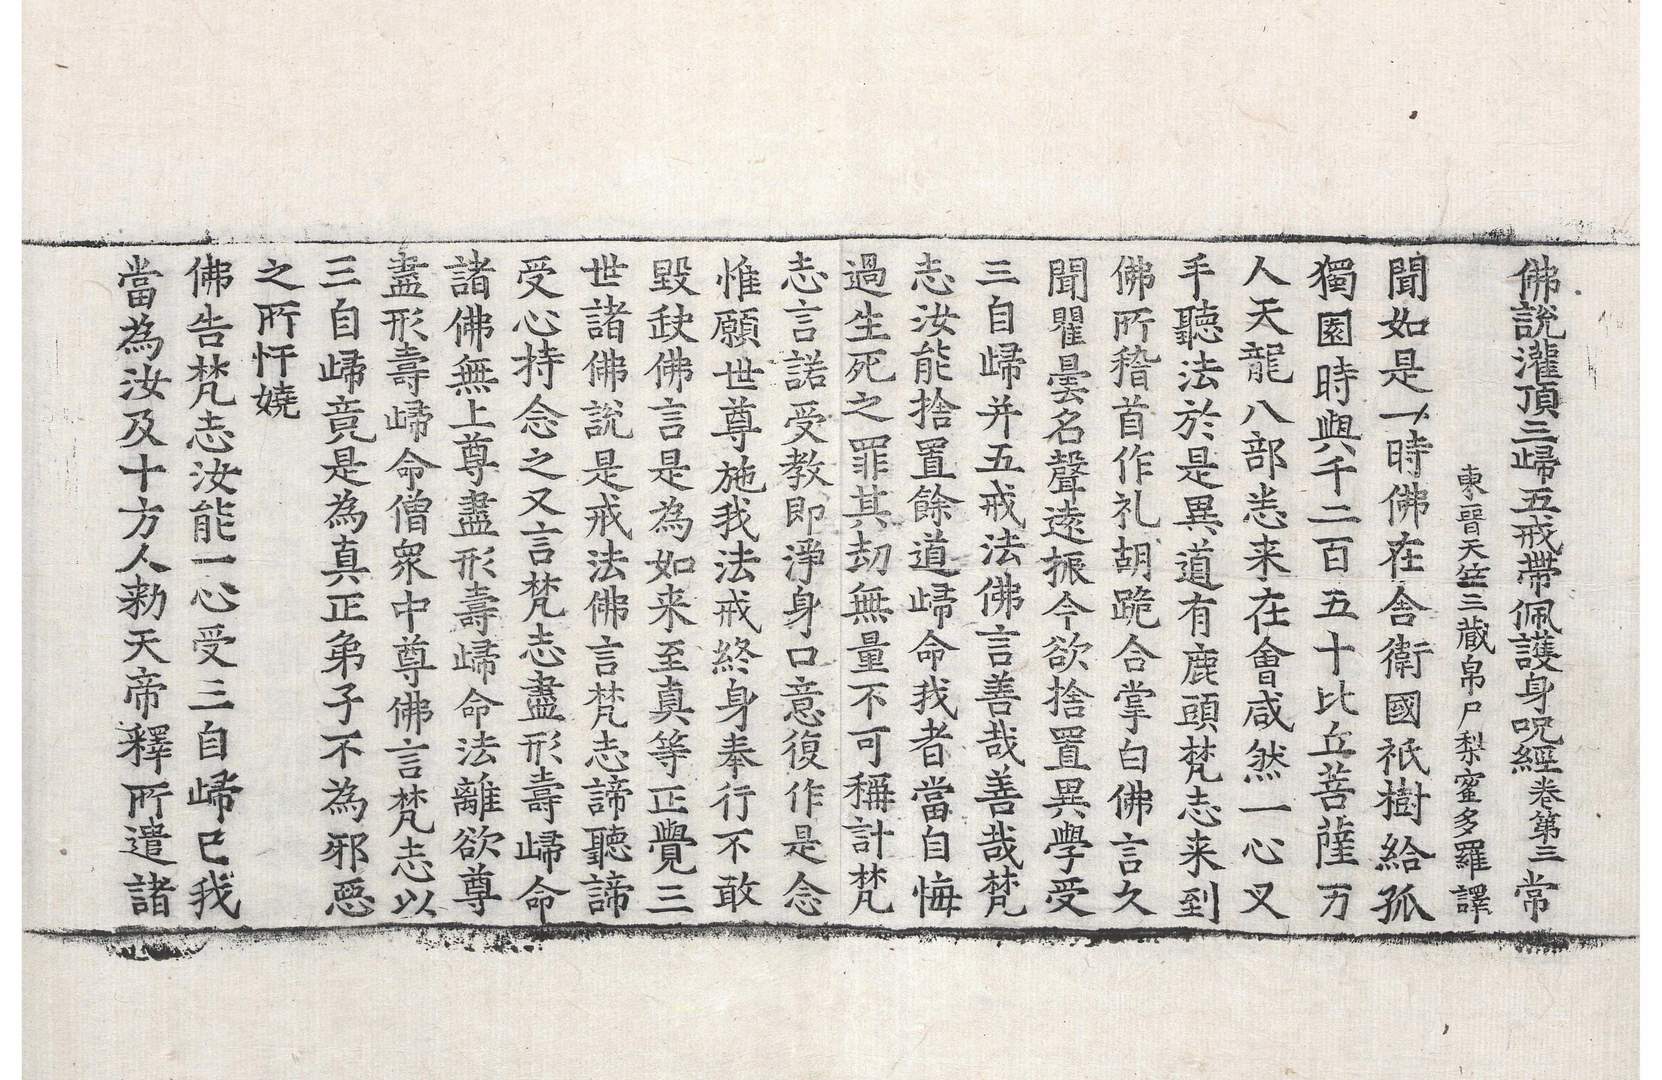 佛說灌頂三歸五戒帶佩護身呪經卷第三常
東晉天竺三藏帛尸梨蜜多羅譯
聞如是一時佛在舍衛國祇樹給孤
獨園時與千二百五十比丘菩薩万
人天龍八部悉来在會咸然一心叉
手聽法於是異道有鹿頭梵志来到
佛所稽首作礼胡跪合掌白佛言久
聞瞿曇名聲遠振今欲捨置異學受
三自歸并五戒法佛言善哉善哉梵
志汝能捨置餘道歸命我者當自悔
過生死之罪其劫無量不可稱計梵
志言諾受教即淨身口意復作是念
惟願世尊施我法戒終身奉行不敢
毀𡙇佛言是為如来至真等正覺三
世諸佛說是戒法佛言梵志諦聽諦
受心持念之又言梵志盡形壽歸命
諸佛無上尊盡形壽歸命法離欲尊
盡形壽歸命僧眾中尊佛言梵志以
三自歸竟是為真正弟子不為邪惡
之所忓嬈
佛告梵志汝能一心受三自歸已我
當為汝及十方人勑天帝釋所遣諸